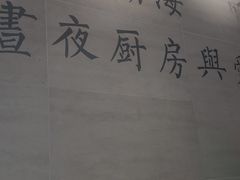 海
晝夜厨房與